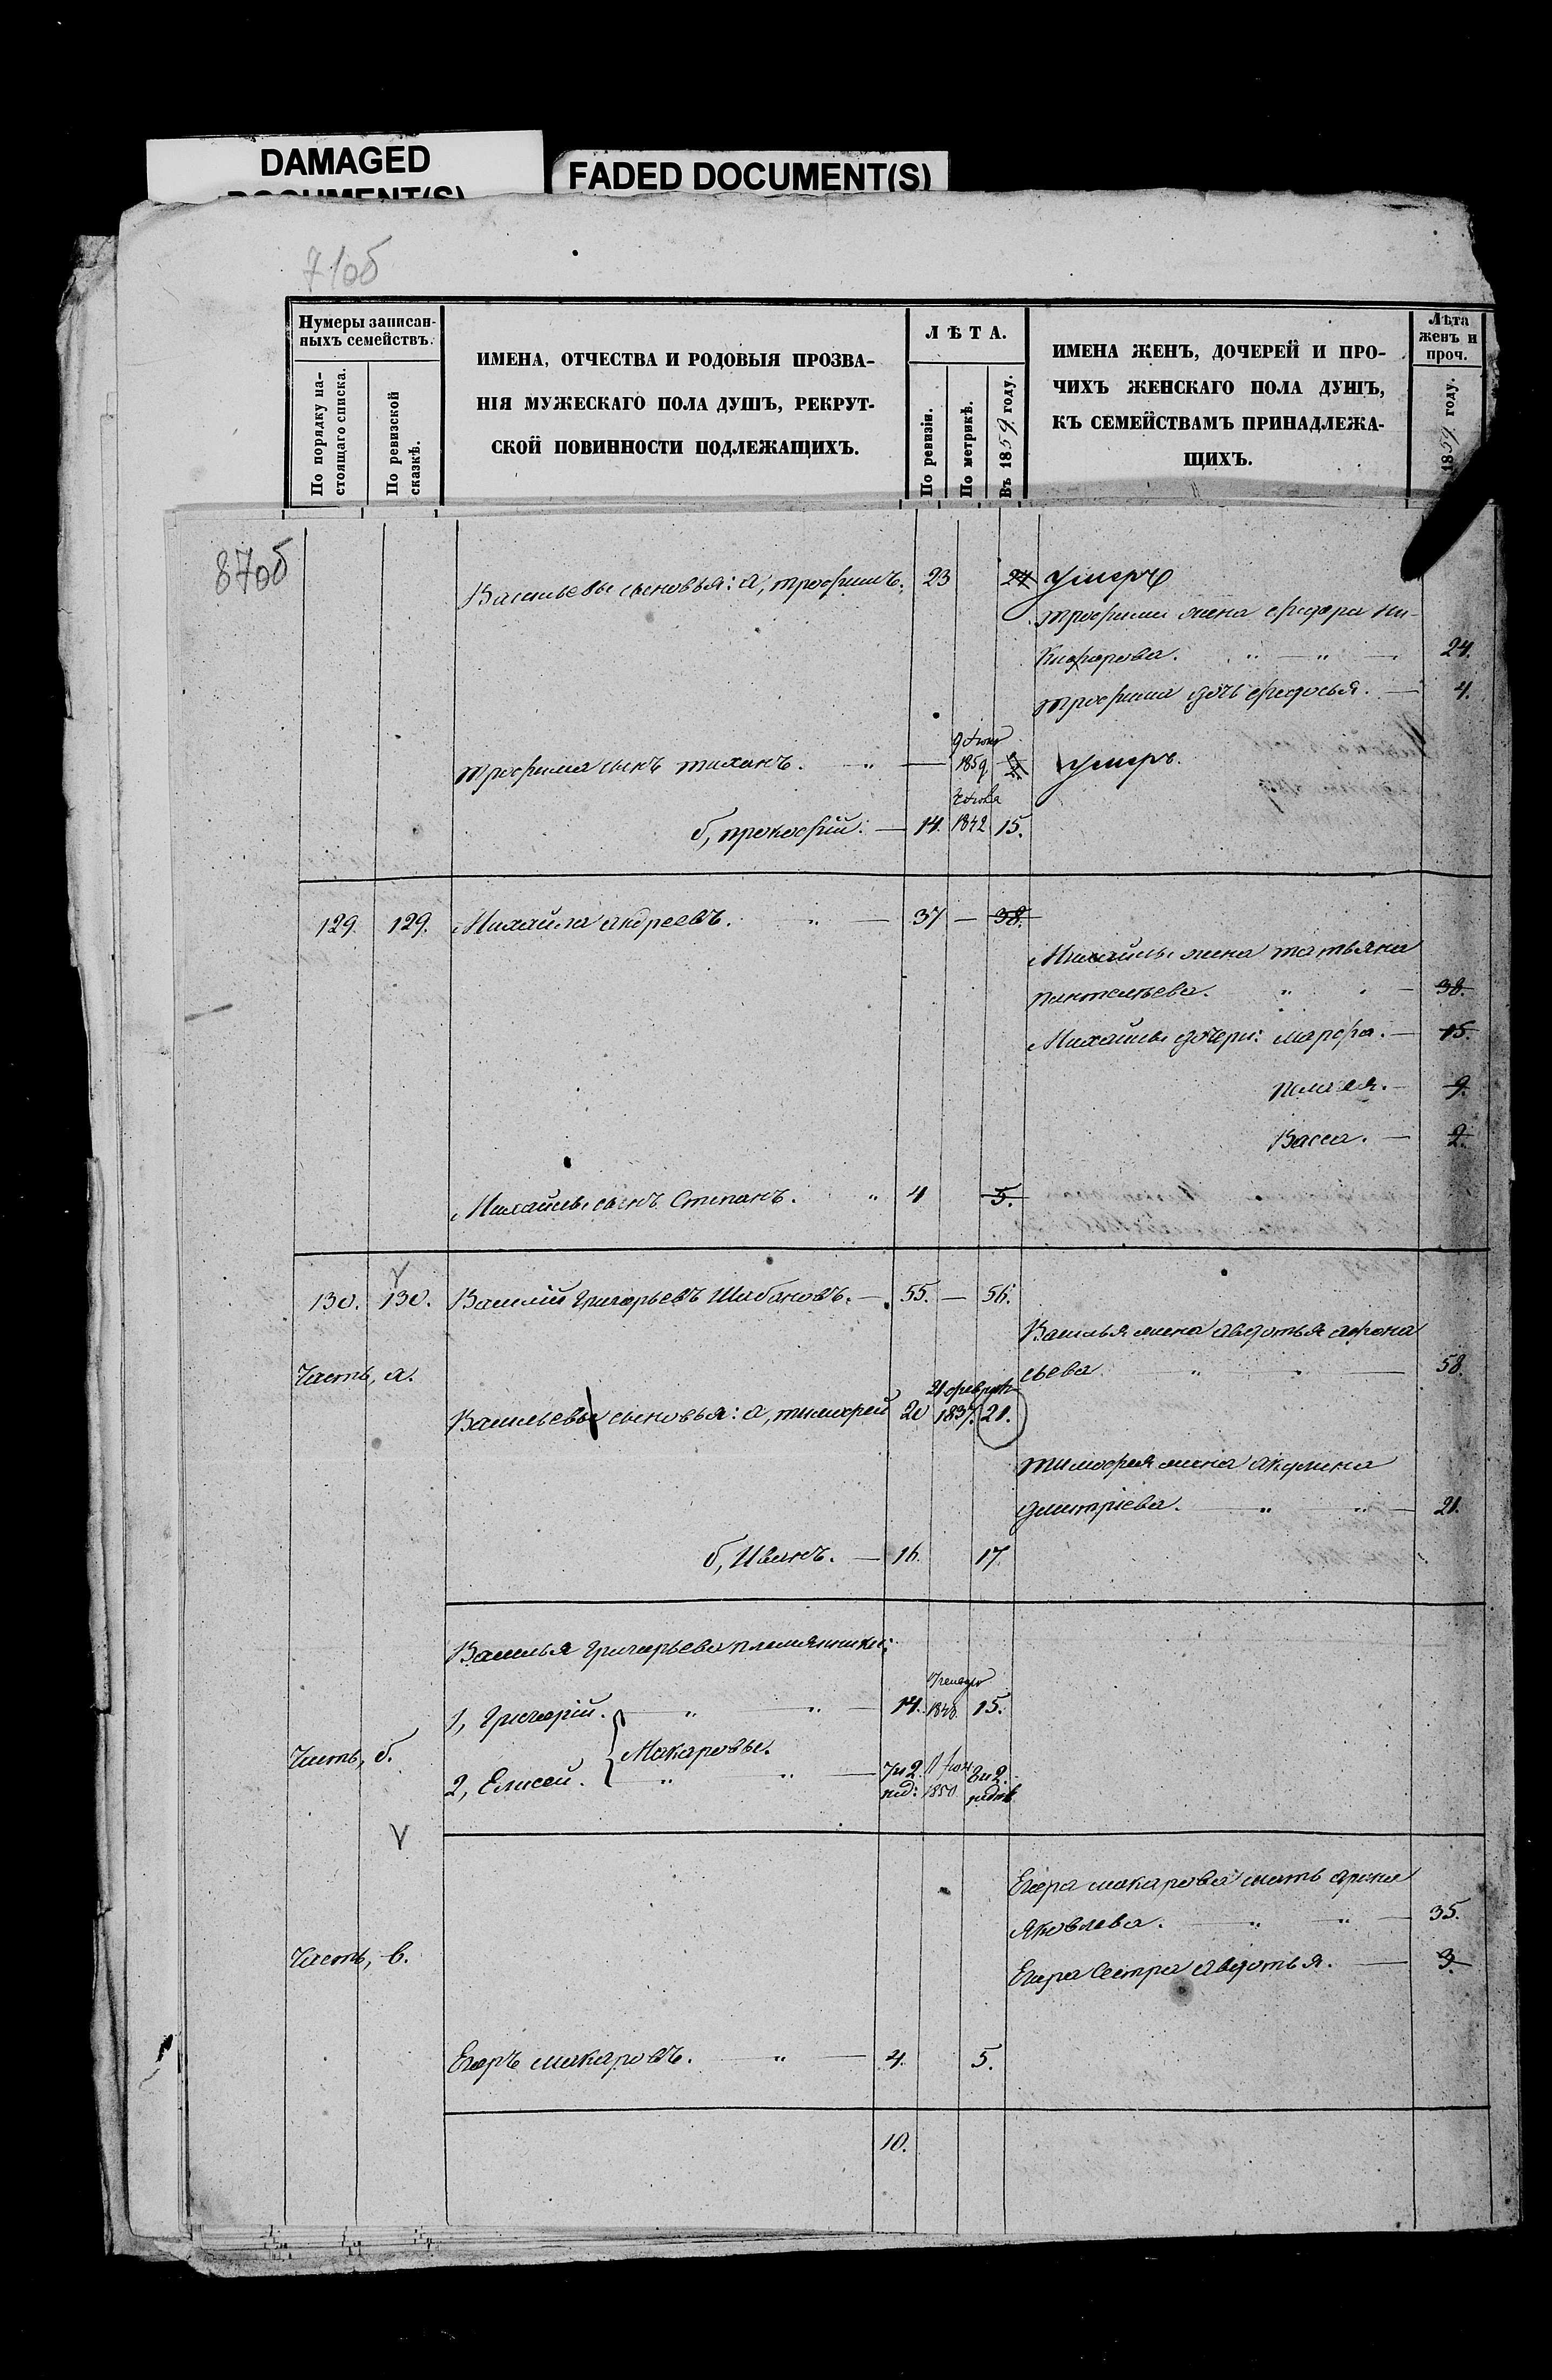 DAMAGED
DOCUMENT(S)
FADED DOCUMENT(S)
71об
Нумеры записан-
ныхъ семействъ.
По порядку на-
стоящаго списка.
По ревизской
сказкѣ.
ИМЕНА, ОТЧЕСТВА И РОДОВЫЯ ПРОЗВА-
НІЯ МУЖЕСКАГО ПОЛА ДУШЪ, РЕКРУТ-
СКОЙ ПОВИННОСТИ ПОДЛЕЖАЩИХЪ.
ЛѢТА.
По ревизіи.
По метрикѣ.
Въ 1859 году.
ИМЕНА ЖЕНЪ, ДОЧЕРЕЙ И ПРО-
ЧИХЪ ЖЕНСКАГО ПОЛА ДУШЪ,
КЪ СЕМЕЙСТВАМЪ ПРИНАДЛЕЖА-
ЩИХЪ.
Лѣта
женъ и
проч.
1859 году.
87об
Васильевы сыновья: а, трофимъ. 23 24 умеръ
трофима жена федора ни-
кифорова. 24.
трофима дочь федосья. 4.
трофима сынъ тиханъ. 1859 умеръ.
б, прокофій. 14. 1842 15.
129. 129. Михайла андреевъ. 37 38.
Михайлы жена татьяна
пантельева. 38.
Михайлы дочери: марфа. 15.
пелагея. 9.
Васса. 2.
Михайлы сынъ Степанъ. 4 5.
130. 130. Василій григорьевъ Шабановъ. 55. 56.
Василья жена авдотья афона
сьева 58.
Часть, а.
Васильевы сыновья: а, тимофей 20 1837. 21.
тимофея жена акулина
дмитріева. 21.
б, Иванъ. 16. 17.
Василья григорьева племянники:
1, григорій. 14. 15.
Часть, б.
Макаровы.
2, Елисей. 7и2. 1850 8и2.
Егора макарова мать
Яковлева. 35.
Часть, в.
Егора сестра авдотья. 3.
Егоръ макаровъ. 4. 5.
10.